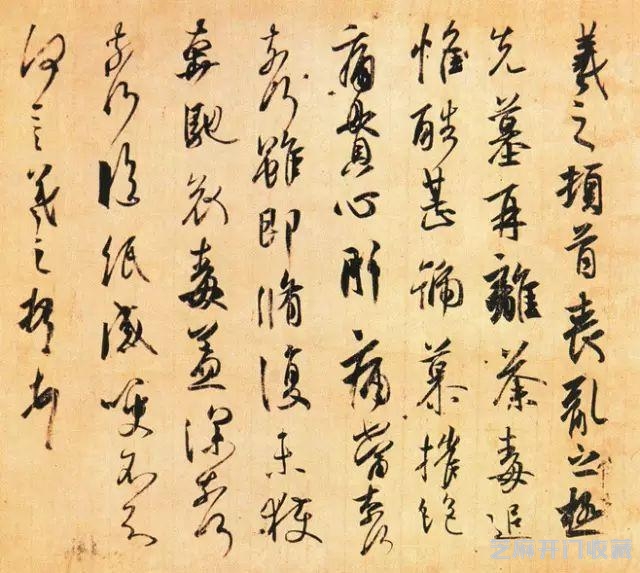 羲之頓首喪亂之極
先墓再離荼毒追
惟酷甚號慕摧絕
痛貫心肝痛當奈何
奈何雖即脩復未獲
奔馳哀毒益深奈何
奈何臨紙感哽不知
何言羲之頓首頓首
芝麻开门收藏